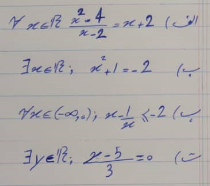 الف) ∀x∈ℝ; (x²-4)/(x-2) = x+2
ب) ∃x∈ℝ; x²+1=-2
پ) ∀x∈(-∞,0); x-1/x ≤ -2
ت) ∃y∈ℝ; (y-5)/3 = 0